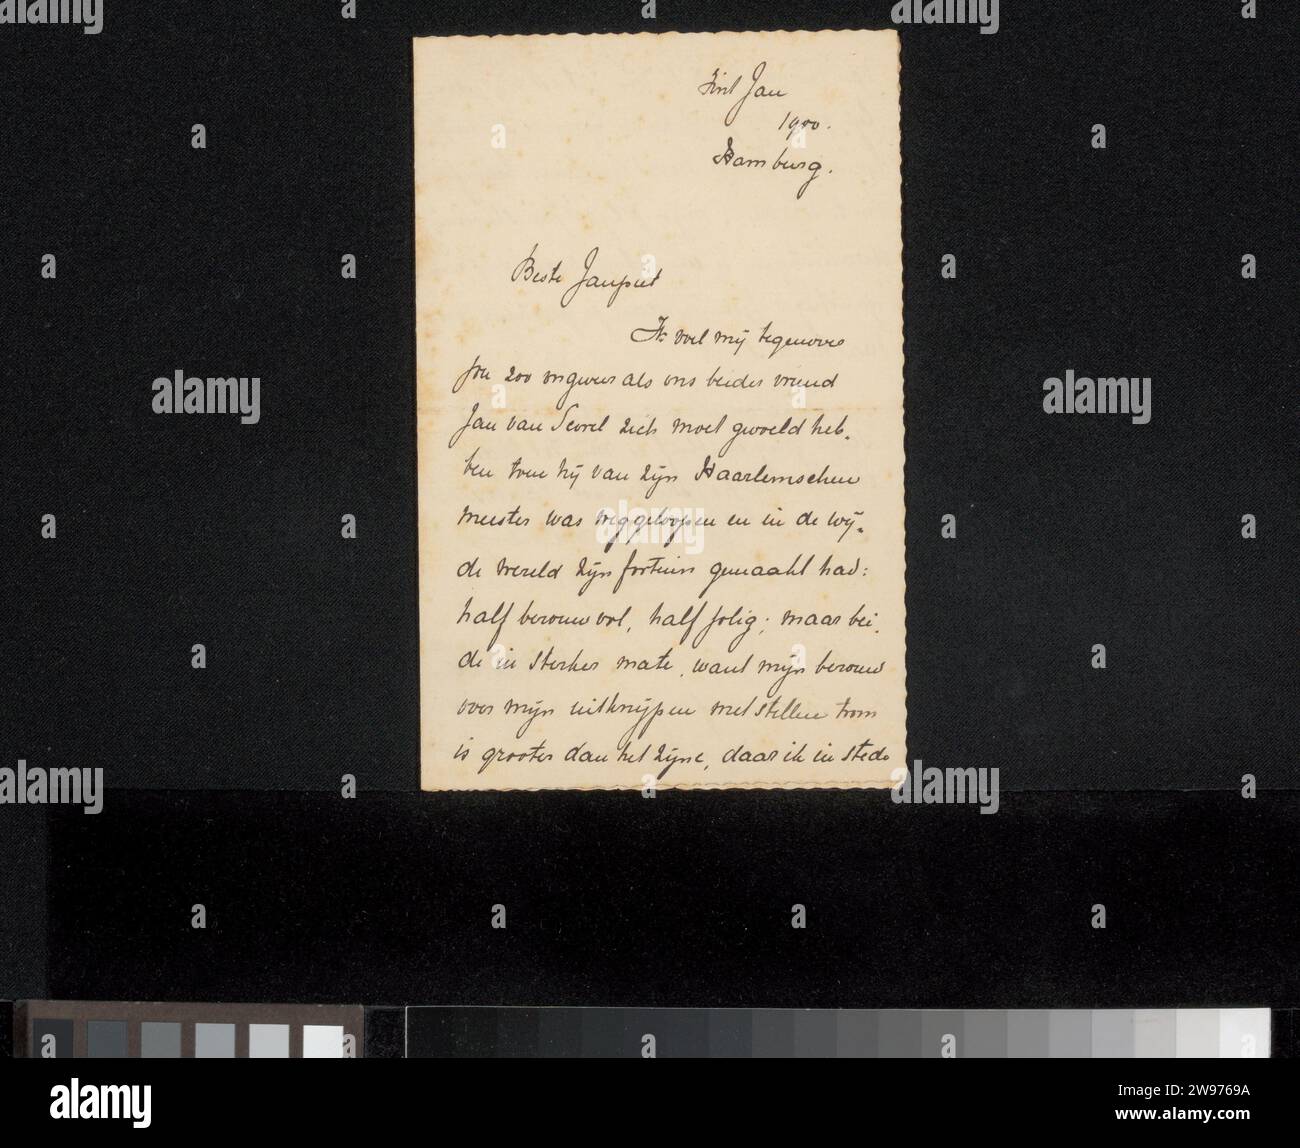 Jan
1900.
Hamburg.
Beste Janpiet
Ik voel mij tegenover
jou zoo ongeveer als ons beider vriend
Jan van Scorel zich moet gevoeld heb-
ben toen hij van zijn Haarlemschen
meester was weggeloopen en in de wij-
de wereld zijn fortuin gemaakt had:
half berouwvol, half jolig; maar bei-
de in sterker mate, want mijn berouw
over mijn uitknijpen met stillen trom
is grooter dan het zijne, daar ik in stede
alamy
Image ID: 2W9769A
www.alamy.com